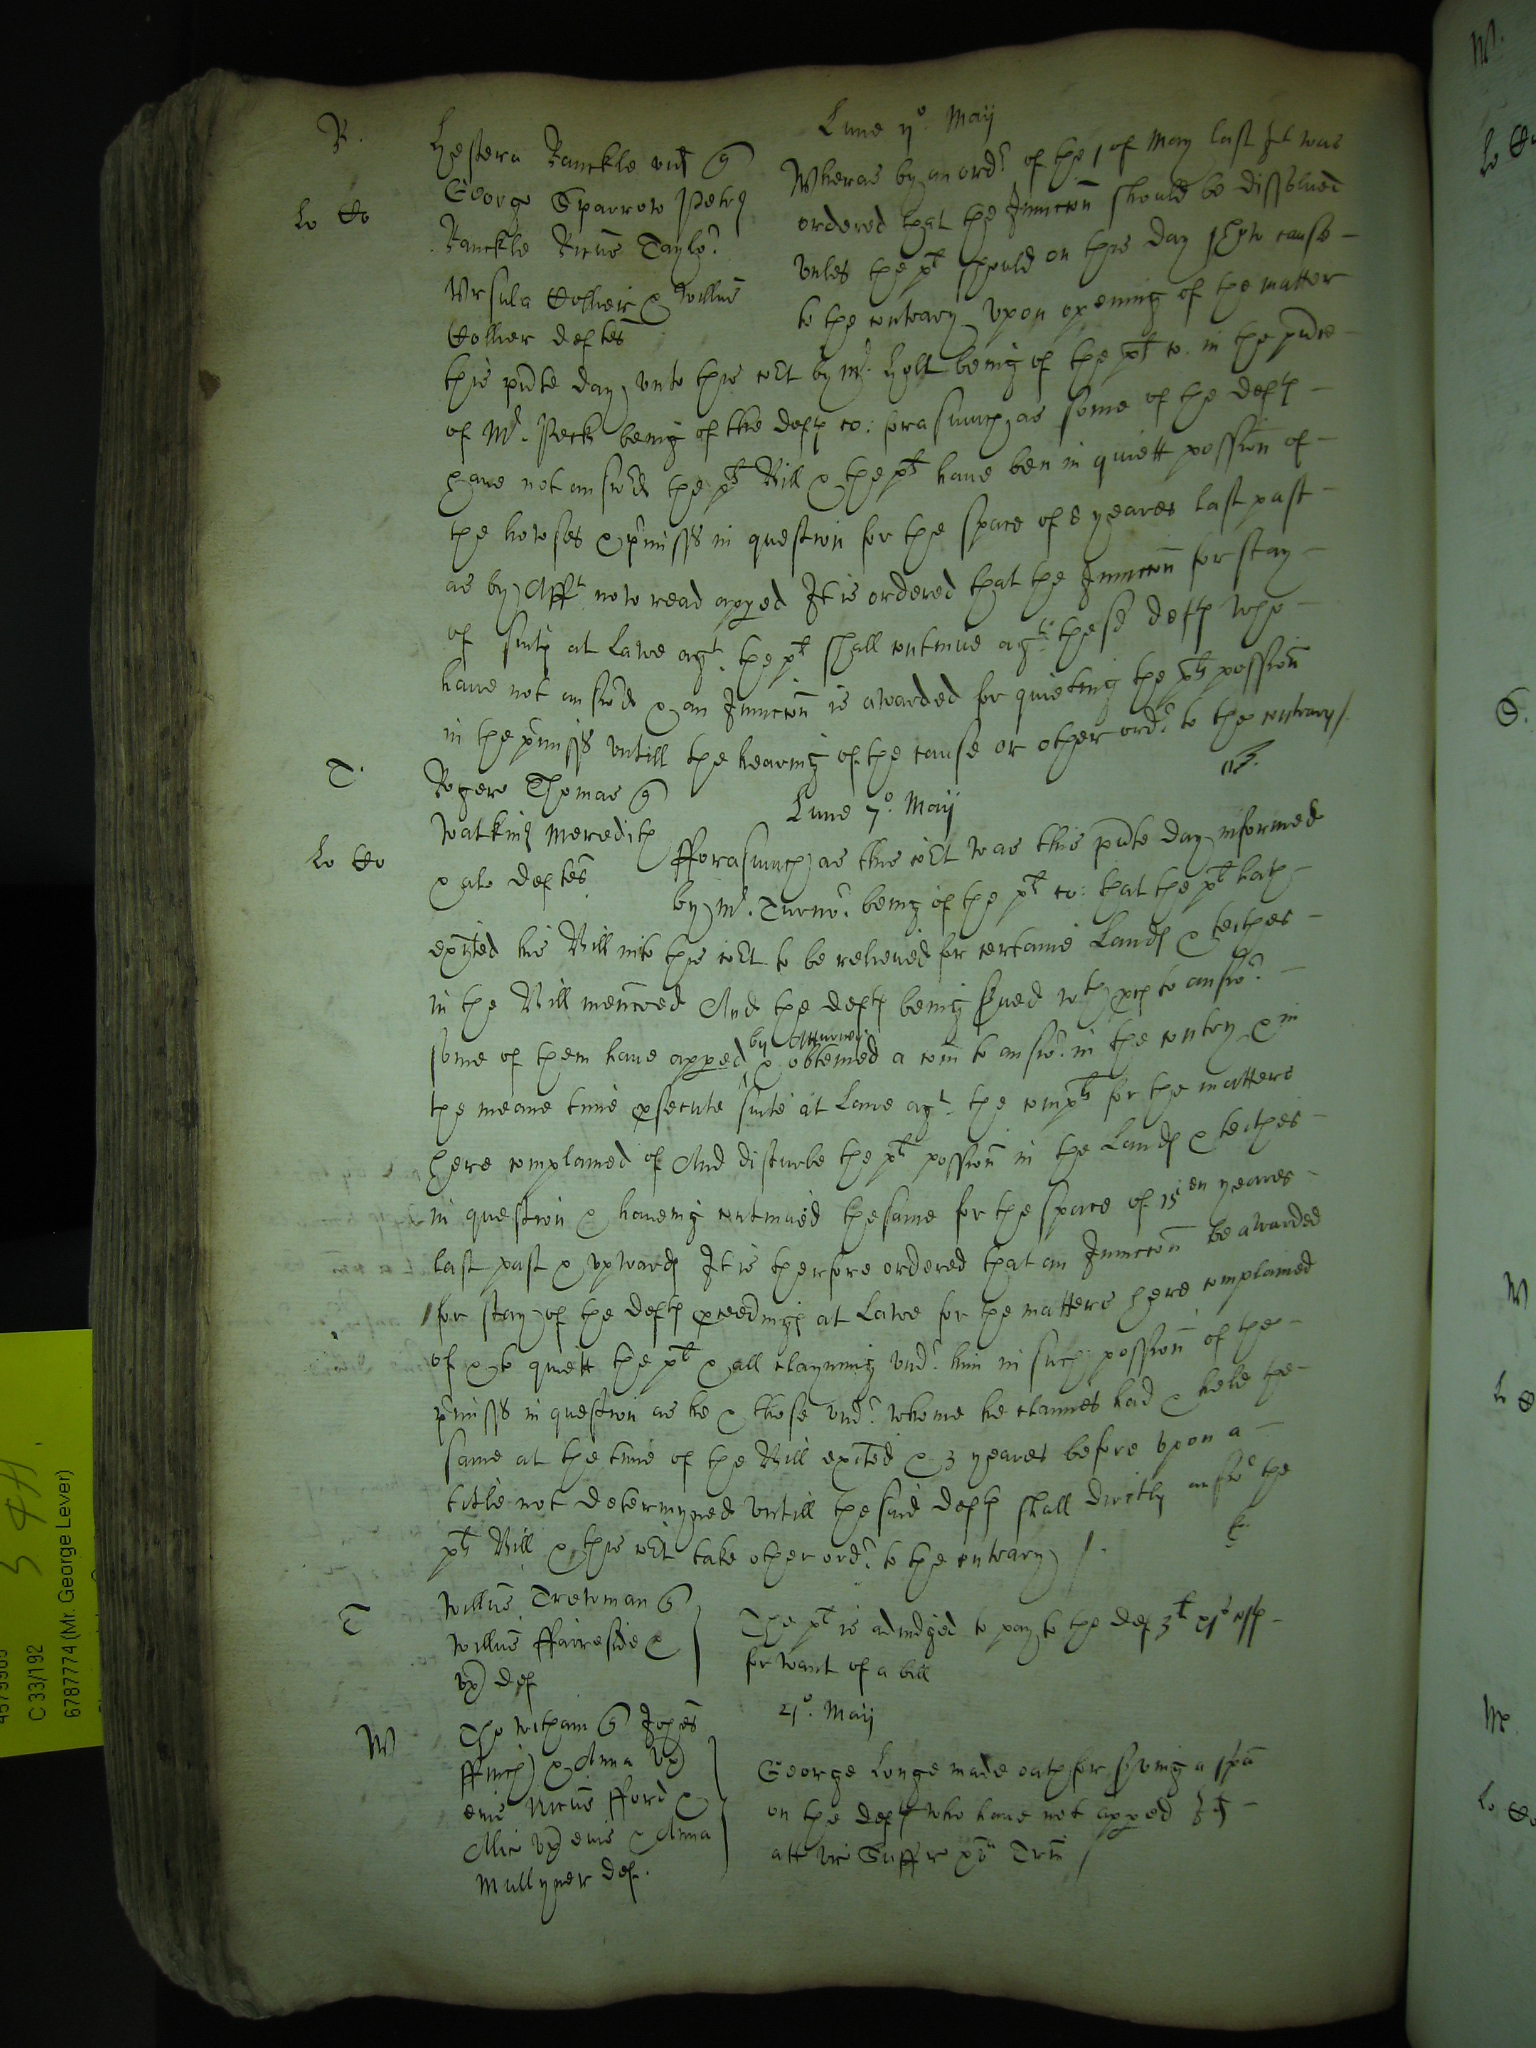 R.
Hestera Ranckle vid q
George Sparrow Petrus
Lo Co
Ranckle Ricus Taylor
Ursula Collier & Willus
Collier deftes
Lune 7o. Maij
Wheras by an ordr of the 1 of May last It was
ordered that the Iniunccon should be dissolued
vnles the plt should on this day shew cause
to the contrary vpon opening of the matter
this pnte day vnto this cort by Mr. Holt being of the plt co. in the pnce
of Mr. Peck being of the deftes co: forasmuch as some of the deftes
haue not answd the plts Bill & the plts haue ben in quiett possession of
the howses & premisses in question for the space of 8 yeares last past
as by Afft now read apped It is ordered that the Iniunccon for stay
of suits at Lawe agt. the plt shall contynue agt. these deftes who
haue not answd & an Iniunccon is awarded for quieting the plts possession
in the premisses vntill the hearing of the cause or other ordr to the contrary /
T.
Rogero Thomas q
Watkins Meredith
Lo Co
& als deftes
Lune 7o. Maij
fforasmuch as this cort was this pnte day informed
by Mr. Turnor. being of the plt co: that the plt hath
exited his Bill into this cort to be relieued for certaine Lands & teithes
in the Bill menconed And the deftes being srued wth pces to answr
some of them haue apped by Atturney & obteined a com to answr. in the contry & in
the meane time psecute suite at Lawe agt. the complt for the matters
here complained of And disturbe the plts possion in the Lands & teithes
in question & haueing contynued the same for the space of 15en yeares
last past & vpwards It is therfore ordered that an Iniunccon be awarded
for stay of the defts pceedings at Lawe for the matters here complained
of & to quiett the plt & all clayming vndr. him in such possion of the
premisses in question as he & those vndr. whome he claimes had & held the
same at the time of the Bill exited & 3 yeares before vpon a
title not determyned vntill the said defts shall directly answr the
plts Bill & this cort take other ordr. to the contrary /.
T
Willus Trewman q
Willus ffaireside &
vx def
The plt is adiudged to pay to the def
for want of a bill
W
Tho Witham q Johes
ffinch & Anna vx
eius Ricus fford &
Alic vx eius & Anna
Mullyner def.
21o. Maij
George Longe made oath for sruing a spa
on the deftes who haue not apped
4579965
C 33/192
6787774 (Mr. George Lever)